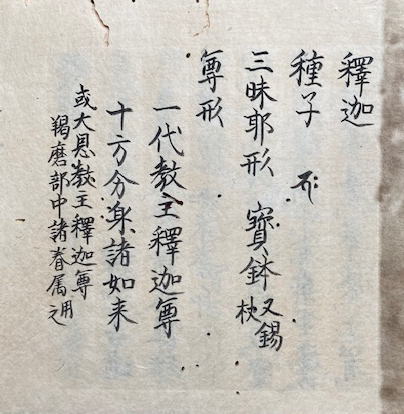 釋迦
種子
三昧耶形 寶鉢 又錫杖
尊形
一代教主釋迦尊
十方分身諸如来
或大恩教主釋迦尊
羯磨部中諸眷属用之